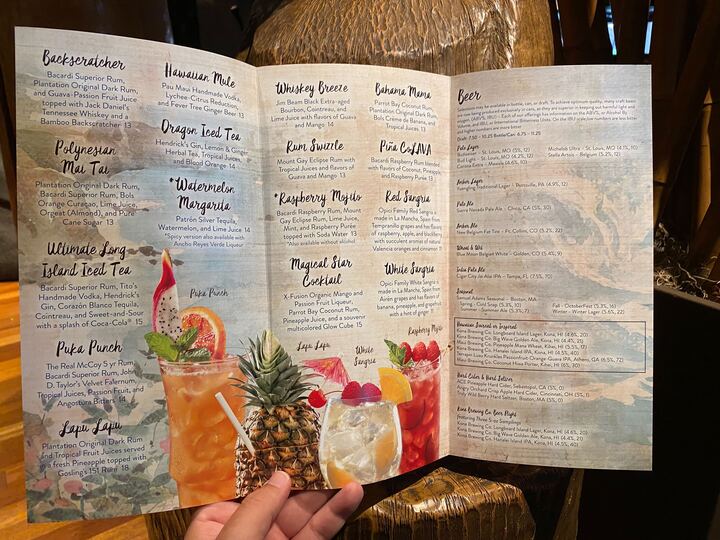 Backscratcher
Bacardi Superior Rum,
Plantation Original Dark Rum,
and Guava-Passion Fruit Juice
topped with Jack Daniel's
Tennessee Whiskey and a
Bamboo Backscratcher 13
Polynesian
Mai Tai
Plantation Original Dark Rum,
Bacardi Superior Rum, Bols
Orange Curaçao, Lime Juice,
Orgeat (Almond), and Pure
Cane Sugar 13
Ultimate Long
Island Iced Tea
Bacardi Superior Rum, Tito's
Handmade Vodka, Hendrick's
Gin, Corazón Blanco Tequila,
Cointreau, and Sweet-and-Sour
with a splash of Coca-Cola® 15
Puka Punch
The Real McCoy 5 yr Rum,
Bacardi Superior Rum, John
D. Taylor's Velvet Falernum,
Tropical Juices, Passion Fruit, and
Angostura Bitters 14
Lapu Lapu
Plantation Original Dark Rum
and Tropical Fruit Juices served
in a fresh Pineapple topped with
Gosling's 151 Rum 18
Hawaiian Mule
Pau Maui Handmade Vodka,
Lychee-Citrus Reduction,
and Fever Tree Ginger Beer 13
Dragon Iced Tea
Hendrick's Gin, Lemon & Ginger
Herbal Tea, Tropical Juices,
and Blood Orange 14
*Watermelon
Margarita
Patrón Silver Tequila,
Watermelon, and Lime Juice 14
*Spicy version also available with
Ancho Reyes Verde Liqueur
Puka Punch
Whiskey Breeze
Jim Beam Black Extra-aged
Bourbon, Cointreau, and
Lime Juice with flavors of Guava
and Mango 14
Rum Swizzle
Mount Gay Eclipse Rum with
Tropical Juices and flavors of
Guava and Mango 13
*Raspberry Mojito
Bacardi Raspberry Rum, Mount
Gay Eclipse Rum, Lime Juice,
Mint, and Raspberry Purée
topped with Soda Water 13
*Also available without alcohol
Magical Star
Cocktail
X-Fusion Organic Mango and
Passion Fruit Liqueur,
Parrot Bay Coconut Rum,
Pineapple Juice, and a souvenir
multicolored Glow Cube 15
Lapu Lapu
White
Sangria
Bahama Mama
Parrot Bay Coconut Rum,
Plantation Original Dark Rum,
Bols Crème de Banana, and
Tropical Juices 13
Piña CoLAVA
Bacardi Raspberry Rum blended
with flavors of Coconut, Pineapple,
and Raspberry Purée 13
Red Sangria
Opici Family Red Sangria is
made in La Mancha, Spain from
Tempranillo grapes and has flavors
of raspberry, apple, and blackberry
with succulent aromas of natural
Valencia oranges and cinnamon 11
White Sangria
Opici Family White Sangria is
made in La Mancha, Spain from
Airén grapes and has flavors of
banana, pineapple, and grapefruit
with a hint of ginger 11
Raspberry Mojito
Beer
Draft 7.50 - 10.25 Bottle/Can 6.75 - 11.25
Pale Lager
Bud Light - St. Louis, MO (4.2%, 10)
Corona Extra - Mexico (4.6%, 10)
Michelob Ultra - St. Louis, MO (4.1%, 10)
Stella Artois - Belgium (5.2%, 12)
Amber Lager
Yuengling Traditional Lager - Pottsville, PA (4.9%, 12)
Pale Ale
Sierra Nevada Pale Ale - Chico, CA (5%, 30)
Amber Ale
New Belgium Fat Tire - Ft. Collins, CO (5.2%, 22)
Wheat & Wit
Blue Moon Belgian White - Golden, CO (5.4%, 9)
India Pale Ale
Cigar City Jai Alai IPA - Tampa, FL (7.5%, 70)
Seasonal
Samuel Adams Seasonal - Boston, MA
Spring - Cold Snap (5.3%, 10)
Summer - Summer Ale (5.3%, 7)
Fall - OctoberFest (5.3%, 16)
Winter - Winter Lager (5.6%, 22)
Kona Brewing Co. Big Wave Golden Ale, Kona, HI (4.4%, 21)
Kona Brewing Co. Hanalei Island IPA, Kona, HI (4.5%, 40)
Hard Cider & Hard Seltzer
ACE Pineapple Hard Cider, Sebastopol, CA (5%, 0)
Angry Orchard Crisp Apple Hard Cider, Cincinnati, OH (5%, 1)
Truly Wild Berry Hard Seltzer, Boston, MA (5%, 0)
Kona Brewing Co. Beer Flight
Kona Brewing Co. Big Wave Golden Ale, Kona, HI (4.4%, 21)
Kona Brewing Co. Hanalei Island IPA, Kona, HI (4.5%, 40)